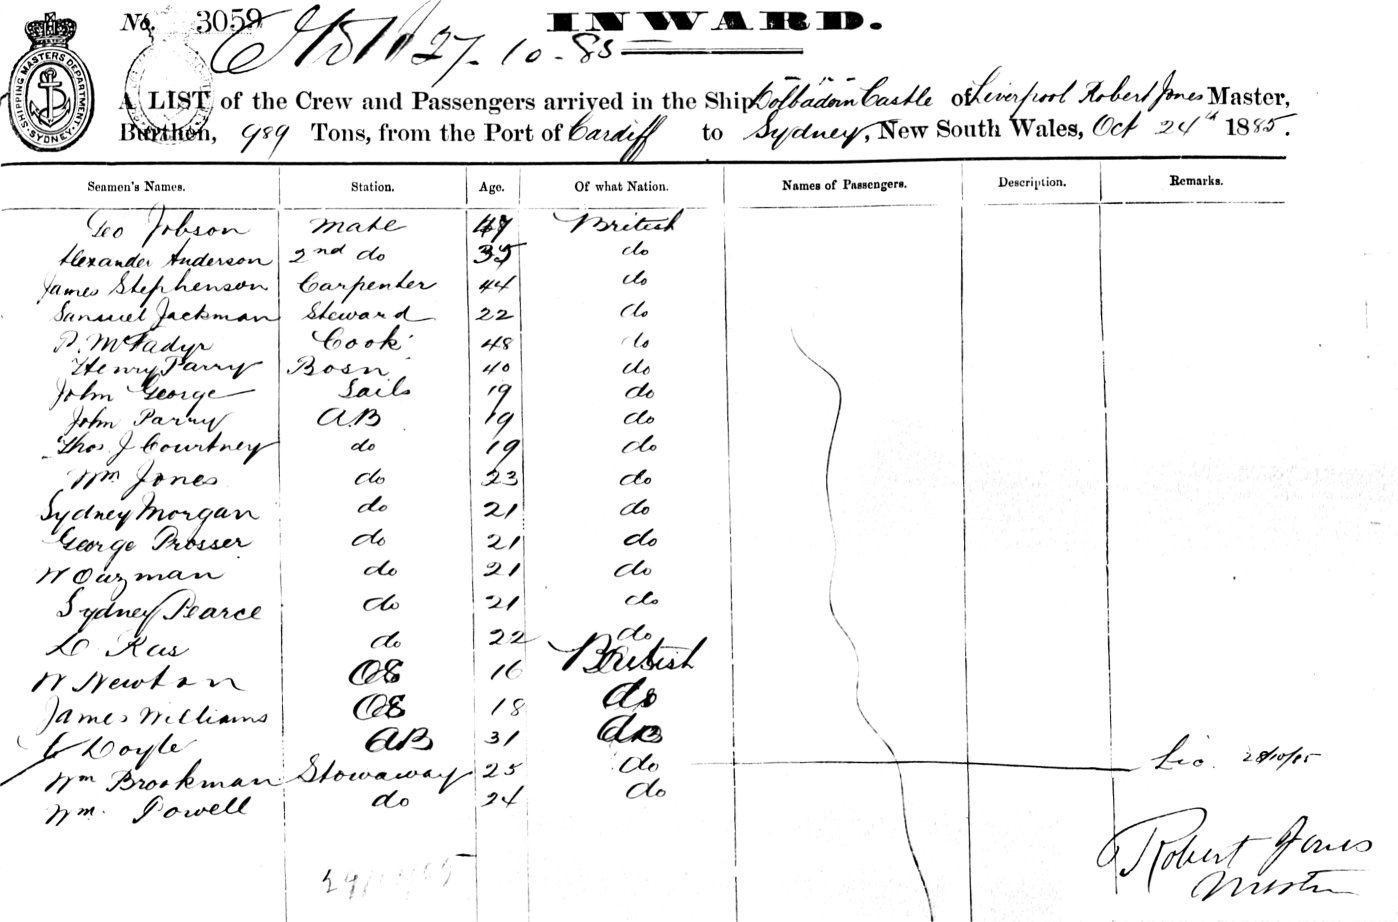 No. 3059 INWARD.
27-10-85
SHIPPING MASTERS DEPARTMENT SYDNEY
A LIST of the Crew and Passengers arrived in the Ship Dolbadarn Castle of Liverpool Robert Jones Master,
Burthen, 989 Tons, from the Port of Cardiff to Sydney, New South Wales, Oct 24th 1885.
Seamen's Names. Station. Age. Of what Nation. Names of Passengers. Description. Remarks.
Geo Jobson Mate 47 British
Alexander Anderson 2nd do 35 do
James Stephenson Carpenter 44 do
Samuel Jackman Steward 22 do
P. McFadyr Cook 48 do
Henry Parry Bosn 40 do
John George Sails 19 do
John Parry AB 19 do
Thos J Courtney do 19 do
Wm Jones do 23 do
Sydney Morgan do 21 do
George Prosser do 21 do
W Ouzman do 21 do
Sydney Pearce do 21 do
Kus do 22 do
W Newton OS 16 British
James Williams OS 18 do
Doyle AB 31 do
Wm Brookman Stowaway 25 do 28/10/85
Wm. Powell do 24 do
Robert Jones
Master